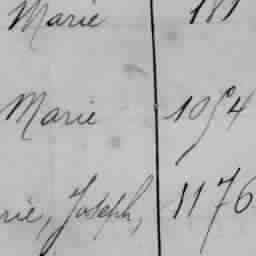 Marie 181
Marie 1054
rie, Joseph, 1176